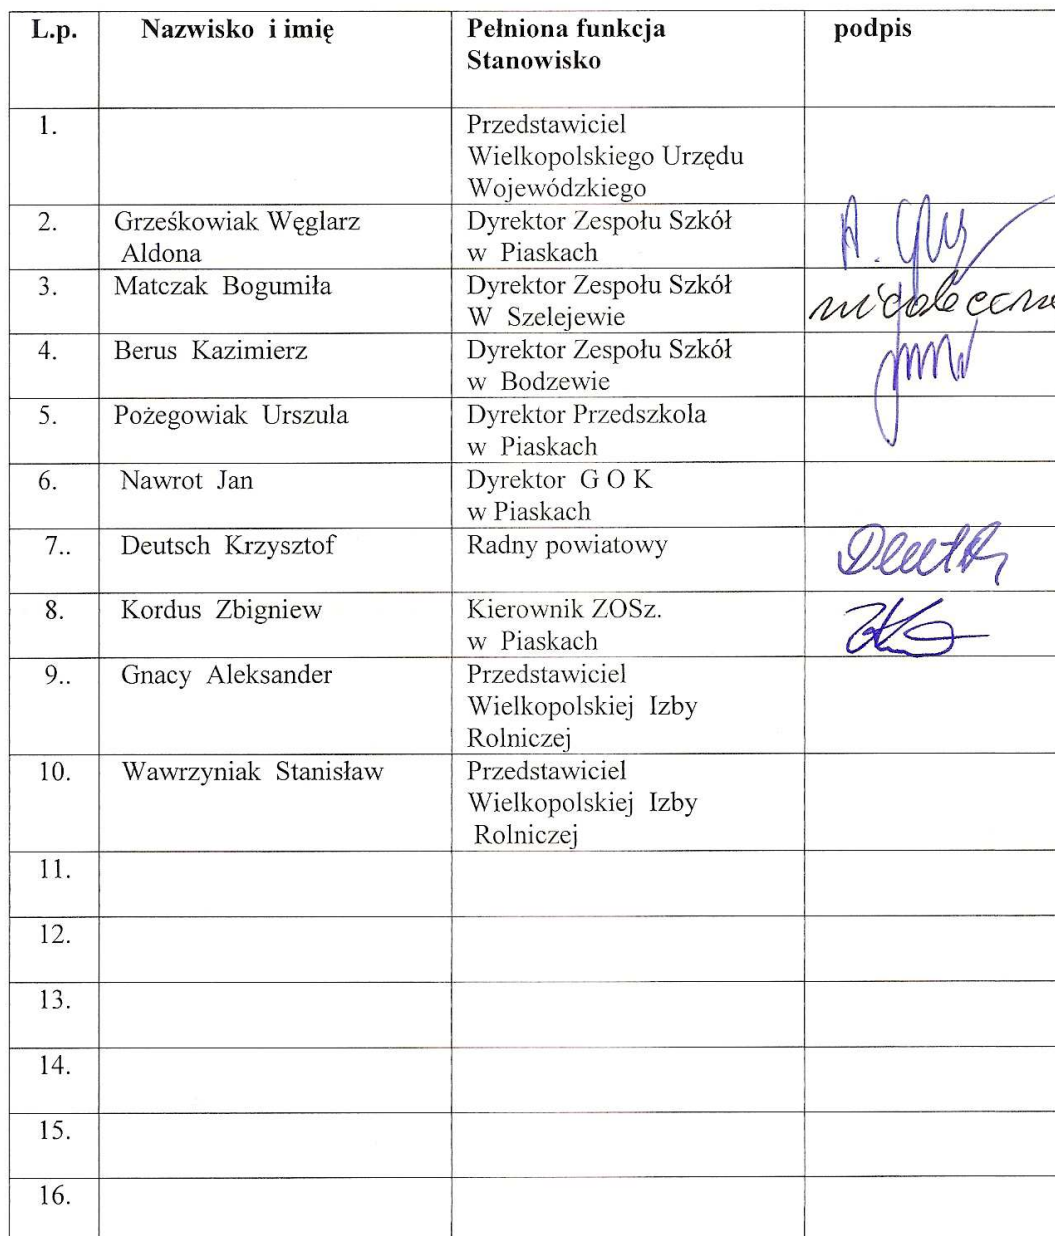 L.p. Nazwisko i imię Pełniona funkcja podpis
Stanowisko
1. Przedstawiciel
Wielkopolskiego Urzędu
Wojewódzkiego
2. Grześkowiak Węglarz Dyrektor Zespołu Szkół
Aldona w Piaskach
3. Matczak Bogumiła Dyrektor Zespołu Szkół
W Szelejewie
4. Berus Kazimierz Dyrektor Zespołu Szkół
w Bodzewie
5. Pożegowiak Urszula Dyrektor Przedszkola
w Piaskach
6. Nawrot Jan Dyrektor G O K
w Piaskach
7.. Deutsch Krzysztof Radny powiatowy
8. Kordus Zbigniew Kierownik ZOSz.
w Piaskach
9.. Gnacy Aleksander Przedstawiciel
Wielkopolskiej Izby
Rolniczej
10. Wawrzyniak Stanisław Przedstawiciel
Wielkopolskiej Izby
Rolniczej
11.
12.
13.
14.
15.
16.